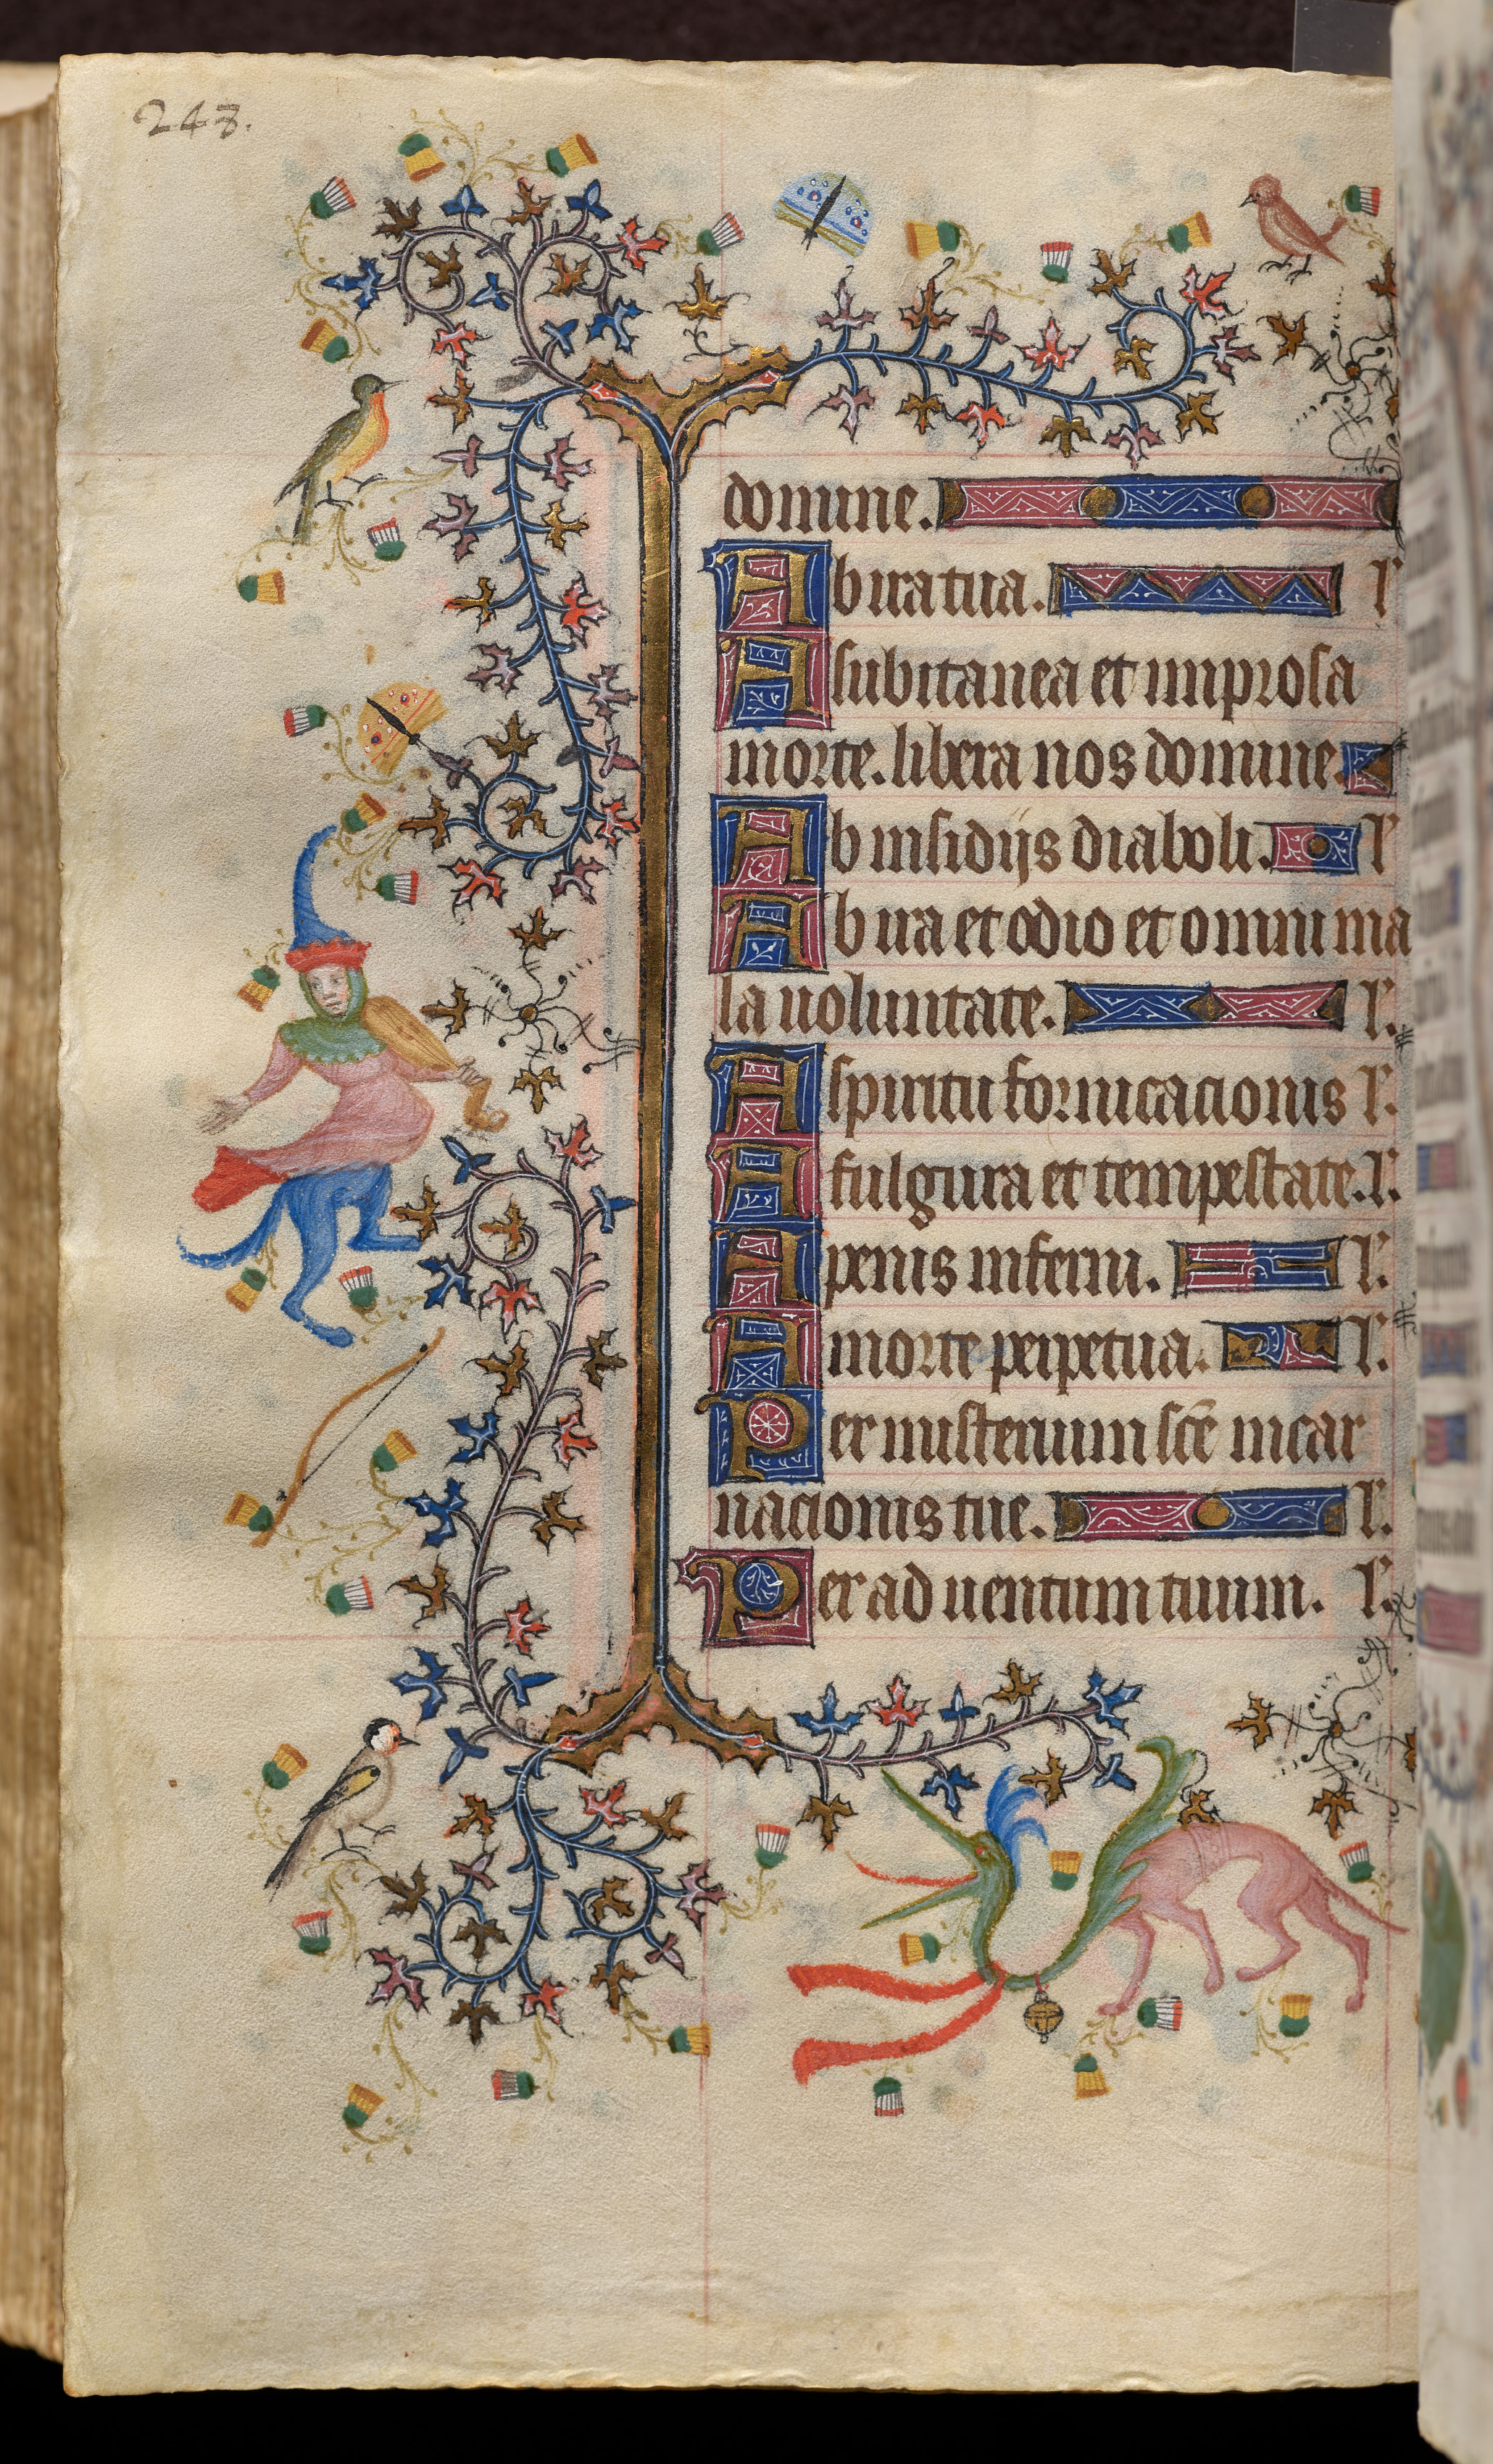 248.
domine.
Ab ira tua. l'
A subitanea et improsa
morte. libera nos domine.
Ab insidijs diaboli. l'
Ab ira et odio et omni ma
la uoluntate. l'.
A spiritu fornicacionis l'.
A fulgura et tempestate. l'.
A penis inferni. l'.
A morte perpetua. l'.
Per misterium sce incar
nacionis tue. l'.
Per ad uentum tuum. l'.